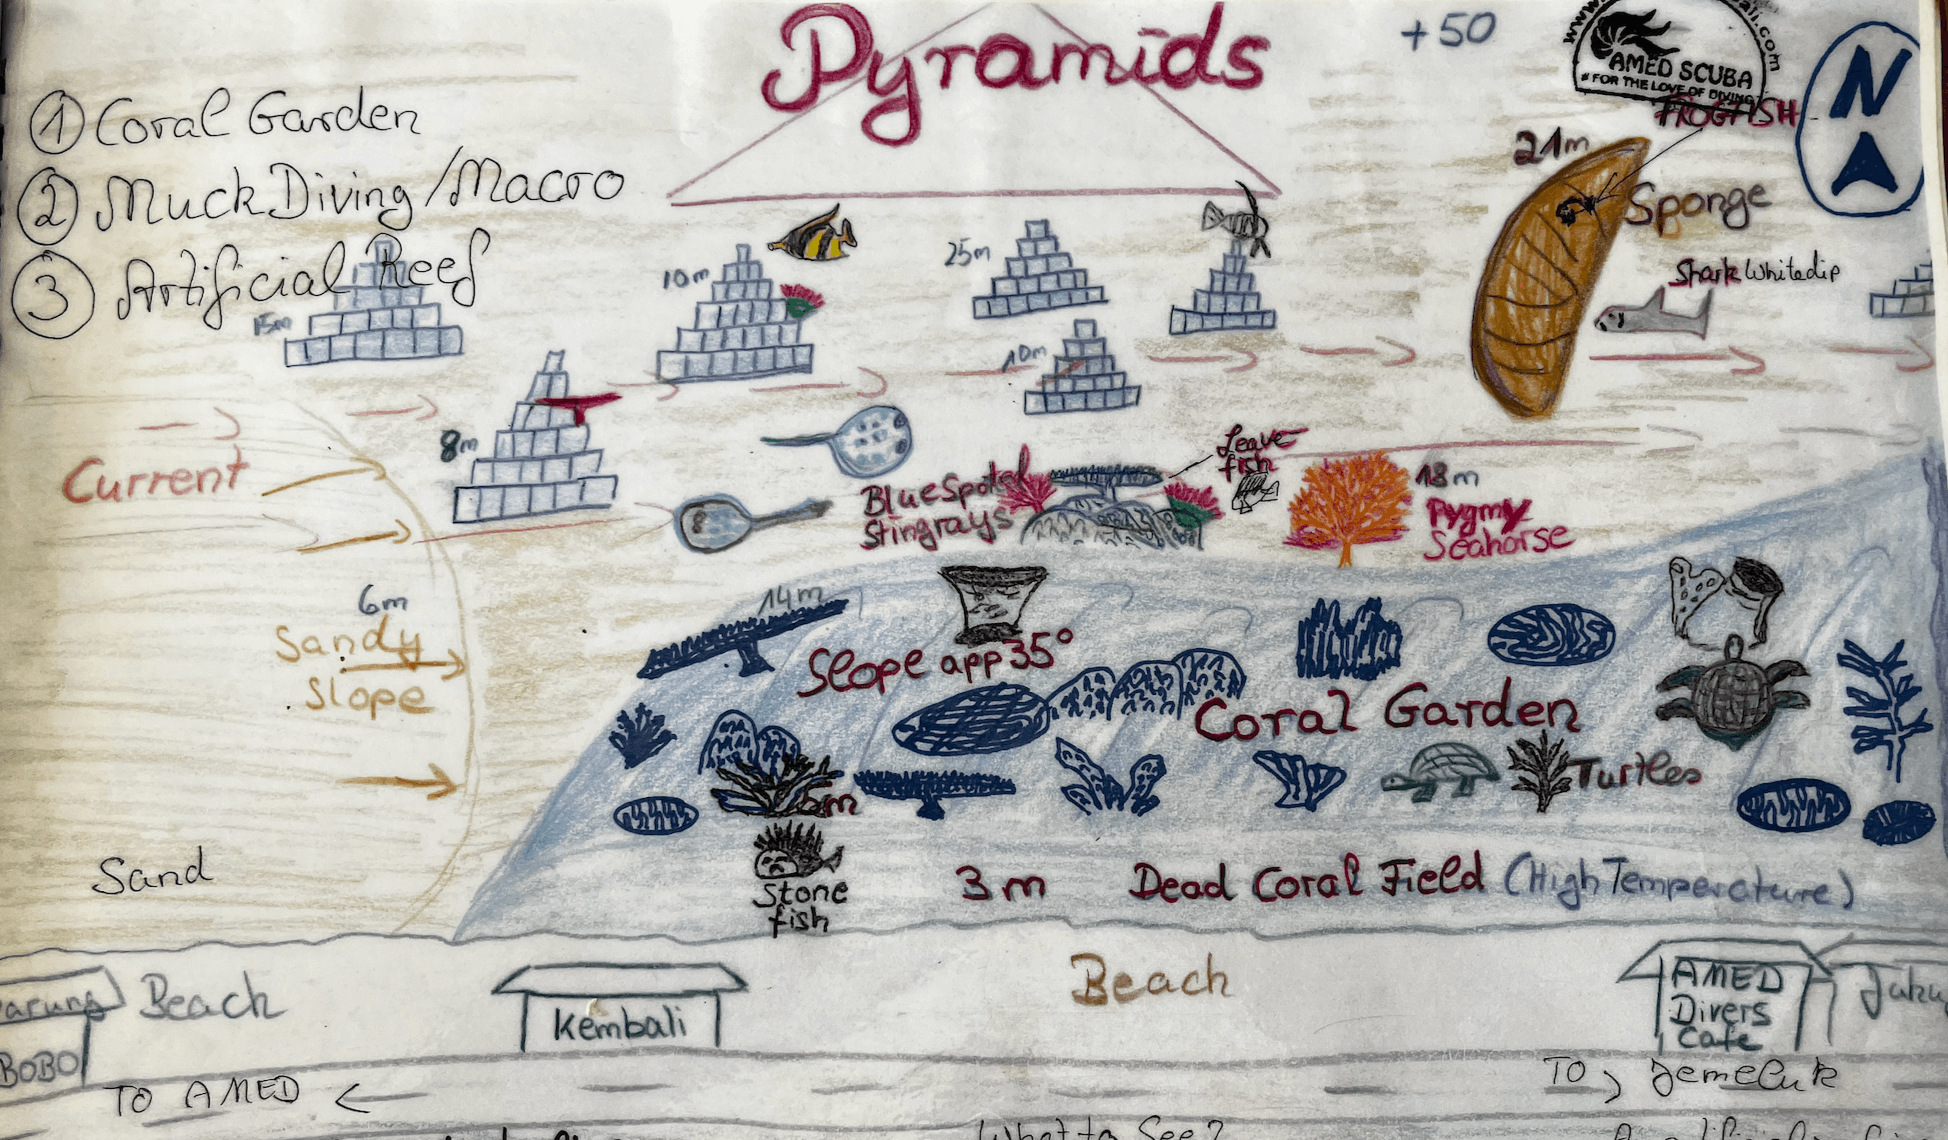 Pyramids
+50
AMED SCUBA
FOR THE LOVE OF DIVING
N
① Coral Garden
② Muck Diving/Macro
③ Artificial Reef
FROGFISH
21m
Sponge
Shark Whitedip
15m
10m
25m
10m
8m
Current
Blue Spoted
Stingrays
Leave
fish
18m
Pygmy
Seahorse
6m
Sandy
Slope
14m
Slope app 35°
Coral Garden
Turtles
5m
Stone
fish
3m
Dead Coral Field (High Temperature)
Sand
Beach
BOBO
Kembali
Beach
AMED
Divers
Cafe
TO AMED
TO Jemeluk
What to See?